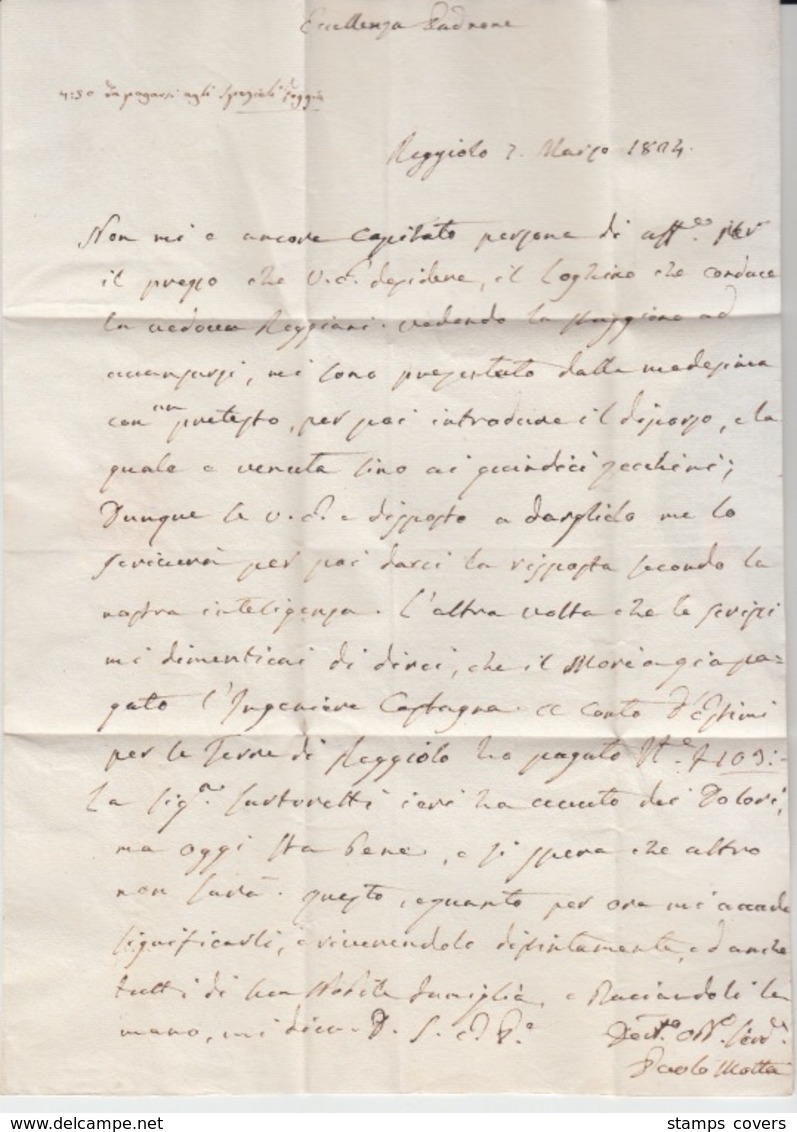 Eccellenza Padrone
4:50 da pagarsi agli Speziali
Reggiolo 7. Marzo 1824.
Non mi è ancora capitato persona di aff.o per
il prezzo che V.E. desidera, il loghino che conduce
la vedova Reggiani. vedendo la staggione ad
avanzarsi, mi sono presentato dalla medesima
con un pretesto, per poi introdure il discorso, e la
quale è venuta sino ai quindici zecchini;
Dunque se V.E. è disposto a darglielo me lo
scriverà per poi darci la risposta secondo la
nostra inteligenza. L'altra volta che le scrissi
mi dimenticai di dirci, che il Mori à già pa=
gato l'Ingeniere Castagna. A Conto d'Estimi
per le Terre di Reggiolo ho pagato 109:-
La Sig.ra Sartoretti ieri ha avuto dei Dolori,
ma oggi sta bene, e si spera che altro
non sarà. Questo, è quanto per ora mi accade
significarli, e riverendolo distintamente, ed anche
tutti di sua Nobile Famiglia, e Baciandoli la
mano, mi dico. D. S. E. P.a
Dev.mo Obb. Serv.
Paolo Motta
stamps covers